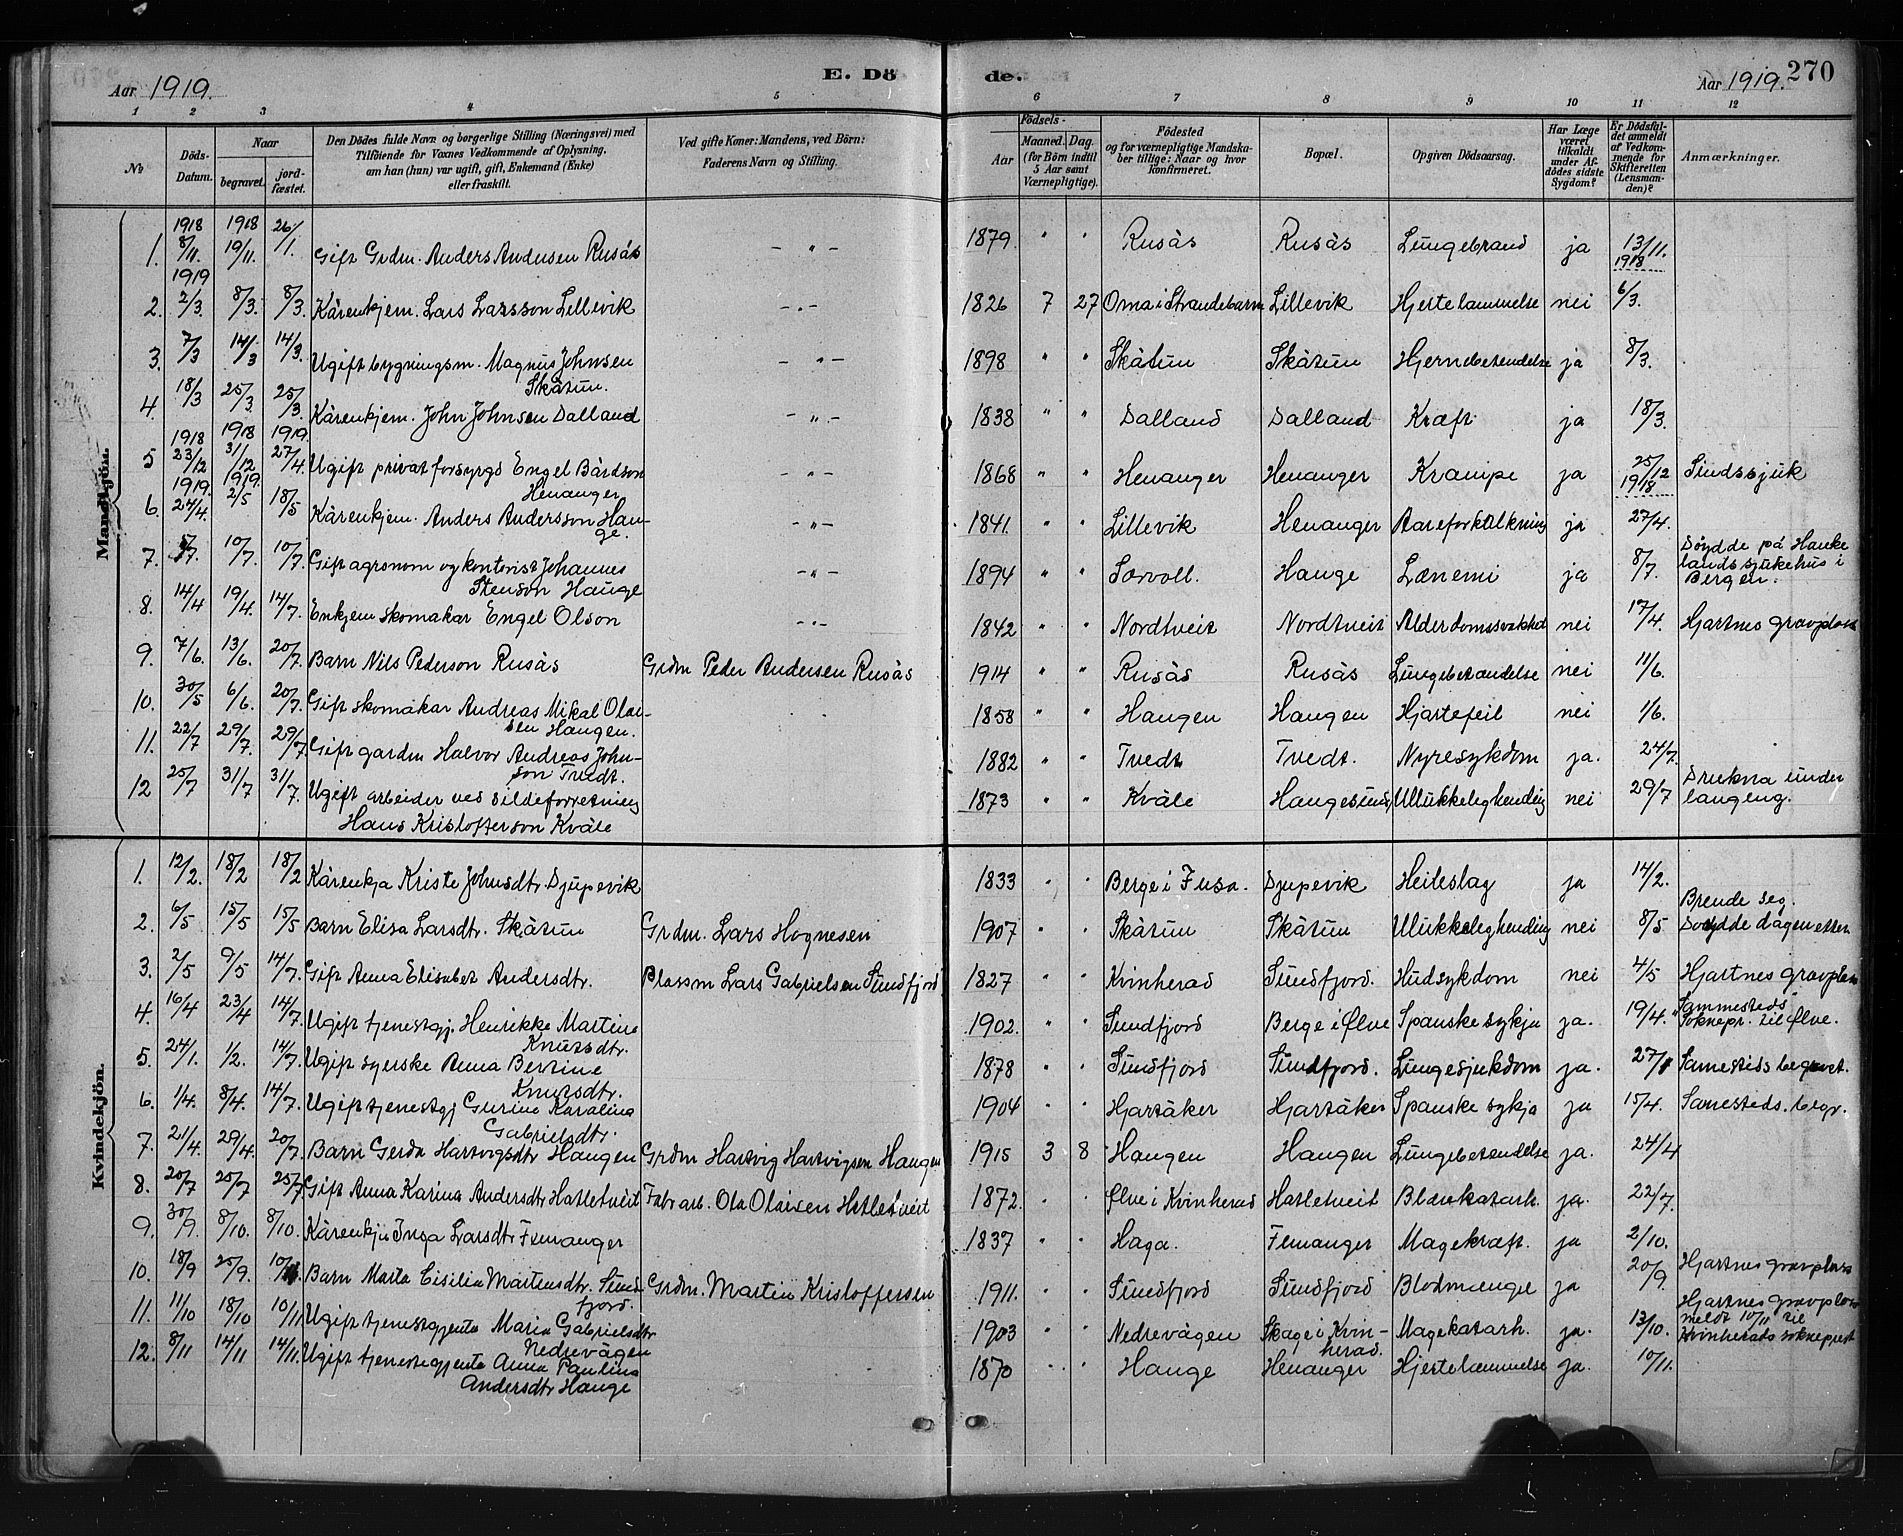 Aar 1919. E. Döde. Aar 1919. 270
1 2 3 4 5 6 7 8 9 10 11 12
No
Döds-Datum.
Naar
begravet.
jordfæstet.
Den Dödes fulde Navn og borgerlige Stilling (Næringsvei) med
Tilföiende for Voxnes Vedkommende af Oplysning,
om han (hun) var ugift, gift, Enkemand (Enke)
eller fraskilt.
Ved gifte Koner: Mandens, ved Börn:
Faderens Navn og Stilling.
Födsels-
Aar
Maaned. Dag.
(for Börn indtil
5 Aar samt
Værnepligtige).
Födested
og for værnepligtige Mandskaber tillige: Naar og hvor
konfirmeret.
Bopæl.
Opgiven Dödsaarsag.
Har Læge været tilkaldt under Afdödes sidste Sygdom?
Er Dödsfaldet anmeldt af Vedkommende for Skifteretten (Lensmanden)?
Anmærkninger.
Mandkjön.
1. 1918 8/11. 1918 19/11. 26/1. Gift Grdm. Anders Andersen Rusås - " - 1879. " " Rusås Rusås Lungebrand ja 13/11. 1918
2. 1919 2/3. 8/3. 8/3. Kårenkjem. Lars Larsson Lillevik - " - 1826 7 27 Oma i Strandebarm Lillevik Hjertelammelse nei 6/3.
3. 7/3 14/3 14/3. Ugift bygningsm. Magnus Johnsen
Skåtun. - " - 1898 " " Skåtun Skåtun Hjernebetendelse ja 8/3.
4. 18/3 25/3. 25/3. Kårenkjem. John Johnsen Dalland - " - 1838 " " Dalland Dalland Kræft ja 18/3.
5 1918 23/12 1918 31/12 1919. 27/4. Ugift privat forsyrgd Engel Bårdson
Henanger - " - 1868 " " Henanger Henanger Krampe ja 25/12 1918 Sindssjuk
6. 1919. 24/4. 1919. 2/5 18/5 Kårenkjem. Anders Andersson Hauge. - " - 1841. " " Lillevik Henanger Aareforkalkning ja 27/4.
7. 5/7. 10/7. 10/7. Gift agronom og kontorist Johannes
Stenson Hauge - " - 1894 " " Sørvoll. Hauge Lænemi ja 8/7. Döydde på Haukelands sjukehus i
Bergen.
8. 14/4 19/4. 14/7. Enkjem skomakar Engel Olson - " - 1842 " " Nordtveit Nordtveit Alderdomssvakhed nei 17/4. Hjartnes gravplass
9. 7/6. 13/6. 20/7. Barn Nils Pederson Rusås Grdm Peder Andersen Rusås 1914 " " Rusås Rusås Lungebetendelse nei 11/6.
10. 30/5 6/6. 20/7. Gift skomakar Andreas Mikal Olaisen Haugen. 1858 " " Haugen Haugen Hjartefeil nei 1/6.
11. 22/7 29/7. 29/7 Gift gardm Halvor Andreas Johnson Tvedt. 1882 " " Tvedt Tvedt. Nyresykdom ja. 24/7.
12 25/7 31/7 31/7. Ugift arbeider ved sildeforretning
Hans Kristofferson Kvåle 1873 " " Kvåle Haugesund Ulukkeleghending nei 29/7 Drukna under
langeng.
Kvindekjön.
1. 12/2. 18/2 18/2 Kårenkja Kriste Johnsdtr Djupevik 1833 " " Berge i Fusa. Djupevik Heileslag ja 14/2.
2. 6/5 15/5 15/5 Barn Elisa Larsdtr. Skåtun Grdm. Lars Hognesen 1907 " " Skåtun Skåtun Ulukkeleghending nei 8/5 Brende seg.
Döydde dagen etter
3. 2/5 9/5 14/7. Gift Anna Elisabet Andersdtr. Plassm Lars Gabrielsen Sundfjord 1827 " " Kvinherad Sundfjord. Hudsykdom nei 4/5 Hjartnes gravplass
4. 16/4 23/4 14/7. Ugift tjenestgj. Henrikke Martine
Knutsdtr. 1902. " " Sundfjord Berge i Ølve Spanske sykja ja. 19/4. " Sammesteds
Soknepr. til Ølve.
5. 24/1. 1/2. 14/7. Ugift syerske Anna Bertine
Knutsdtr. 1878 " " Sundfjord Sundfjord. Lungesjukdom ja. 27/1 Samesteds begravet.
6. 1/4. 8/4. 14/7. Ugift tjenestgj Gurine Karolina
Gabrielsdtr. 1904 " " Hjartåker Hjartåker Spanske sykja ja 15/4. Samesteds. begr.
7. 21/4. 29/4. 20/7. Barn Gerda Hartvigsdtr Haugen Grdm Hartvig Hartvigsen Haugen 1915 3 8 Haugen Haugen Lungebetendelse ja. 24/4
8. 20/7 25/7 25/7 Gift Anna Karina Andersdtr Hatletveit Fabr arb. Ola Olaisen Hatletveit 1872. " " Ølve i Kvinherad Hatletveit Blærekatarh. ja. 22/7.
9. 30/9. 8/10. 8/10. Kårenkje Inga Larsdtr Femanger 1837 " " Haga. Femanger Magekræft. ja 2/10.
10. 18/9 25/9. 10/11. Barn Marta Cisilia Martinsdtr. Sundfjord. Grdm. Martin Kristoffersen 1911. " " Sundfjord Sundfjord Blodmangel ja 20/9. Hjartnes gravplass
11. 11/10 18/10 10/11 Ugift tjenestgjenta Maria Gabrielsdtr
Nedrevågen 1903 " " Nedrevågen Skage i Kvinherad. Magekatarh. ja. 13/10. Hjartnes gravplass
meldt 10/11 til
Kvinherads sokneprest
12. 8/11 14/11 14/11. Ugift tjenestegjente Anna Paulina
Andersdtr Hauge 1870 " " Hauge Henanger Hjertelammelse ja. 10/11.